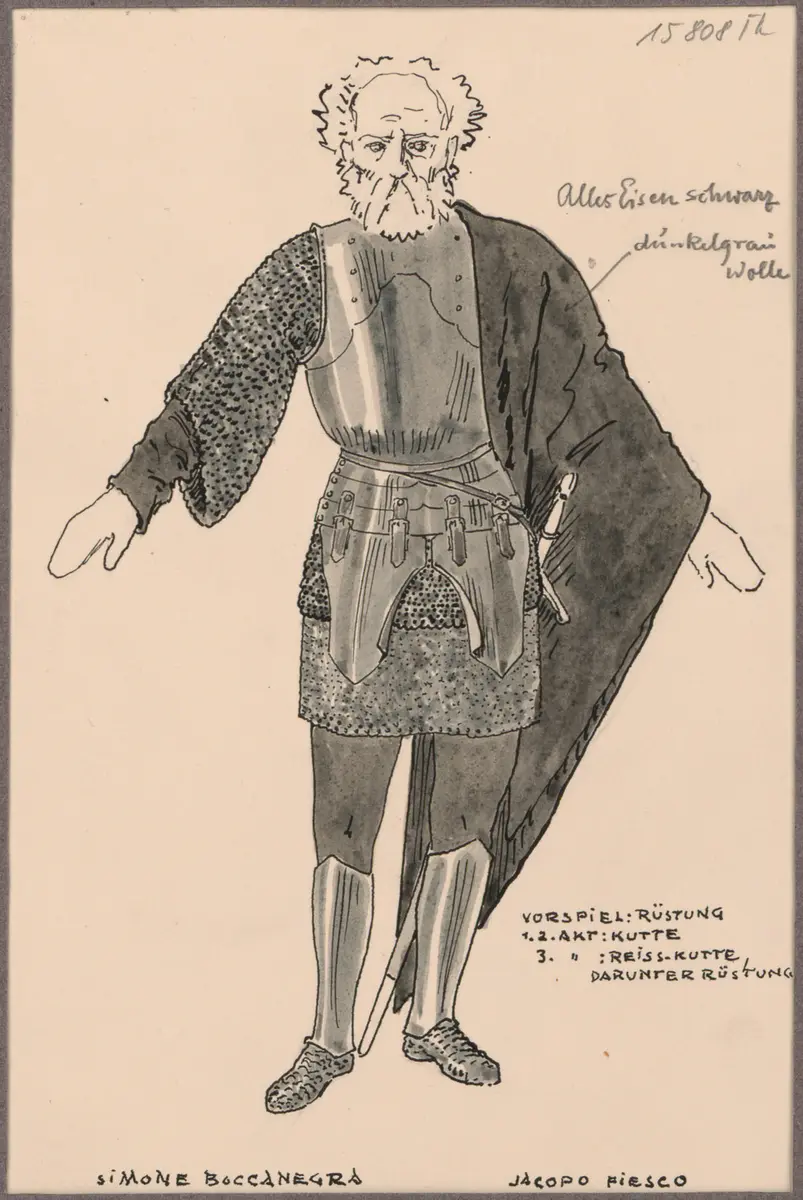 15808 Th
Alles Eisen schwarz
dunkelgrau
Wolle
VORSPIEL: RÜSTUNG
1. 2. AKT: KUTTE
3. " : REISS-KUTTE,
DARUNTER RÜSTUNG
SIMONE BOCCANEGRA JACOPO FIESCO